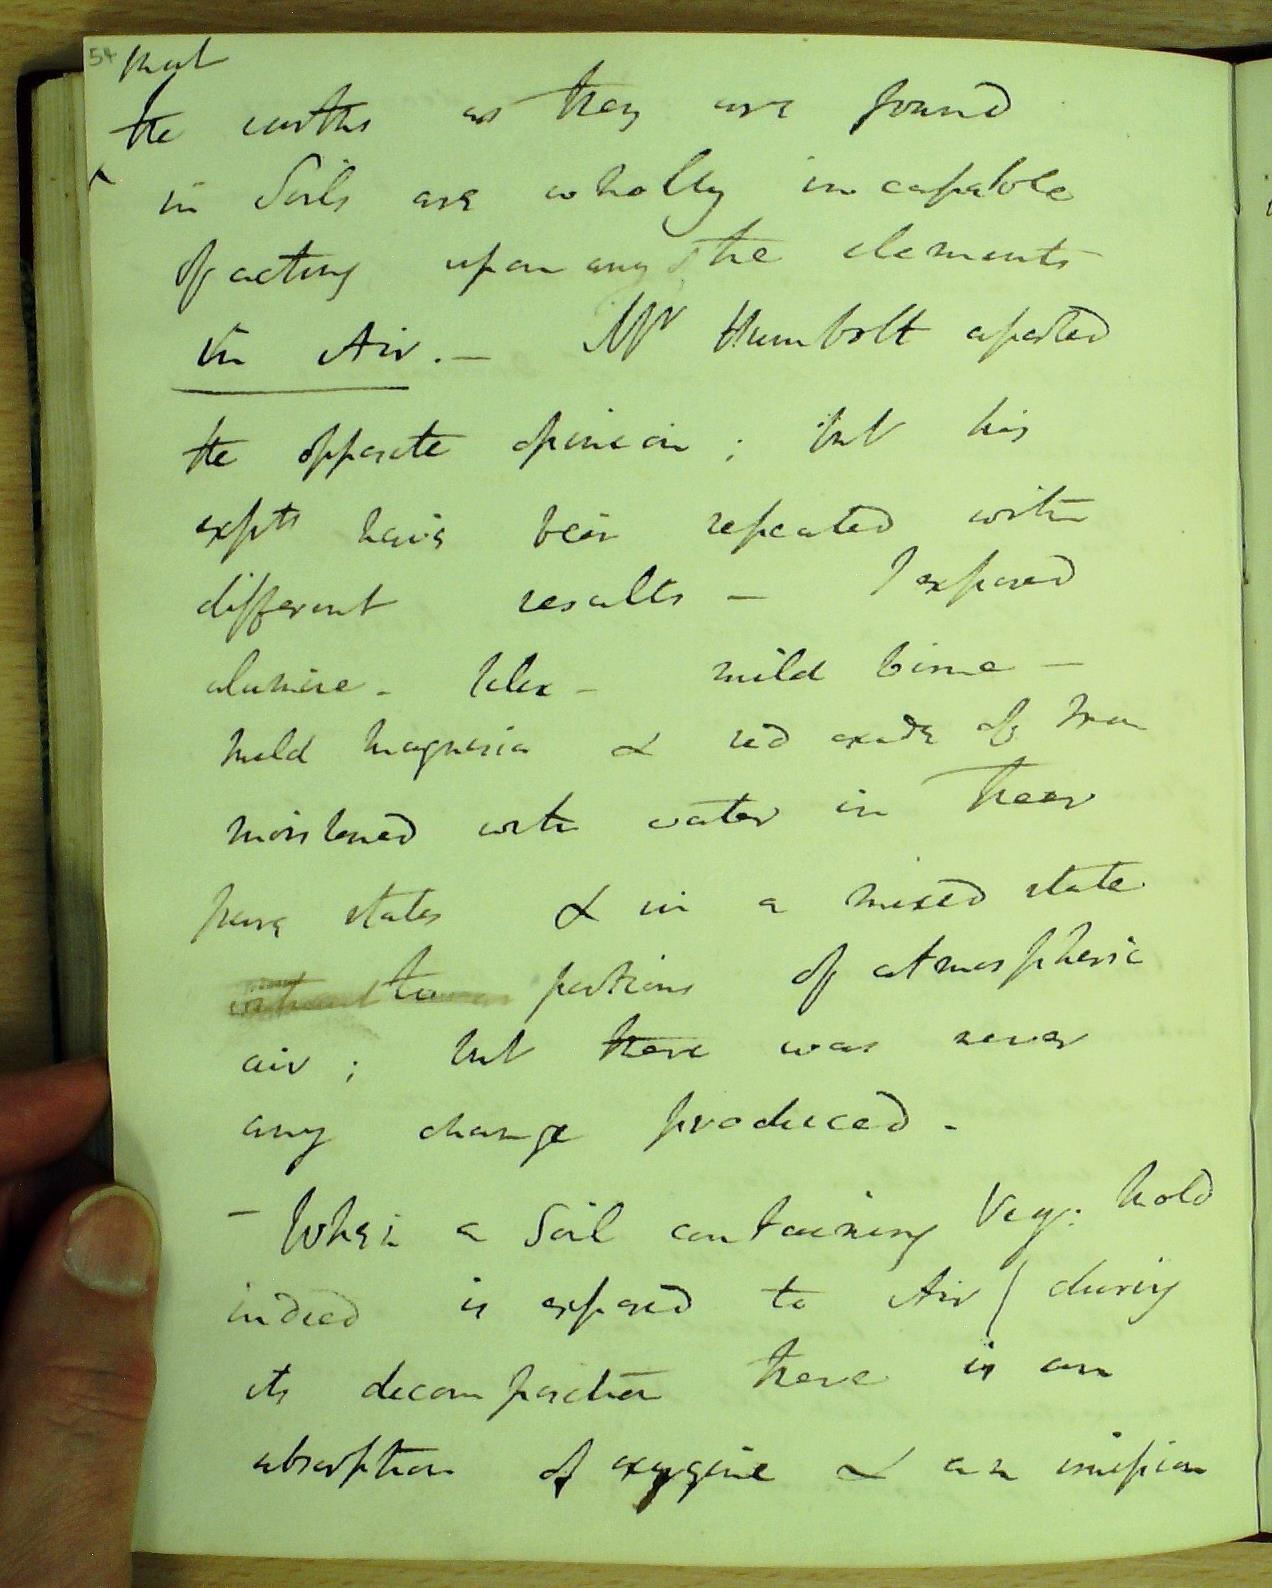 54 that
the earths as they are found
in Soils are wholly incapable
of acting upon any of the elements
in Air. – Mr Humbolt asserted
the opposite opinion; but his
expts have been repeated with
different results – I exposed
alumine – silex – mild lime –
mild magnesia & red oxide of Iron
moistened with water in their
pure states & in a mixed state
to portions of atmospheric
air; but there was never
any change produced –
– When a Soil containing Veg: mold
indeed is exposed to Air / during
its decomposition there is an
absorption of oxygene & an emission